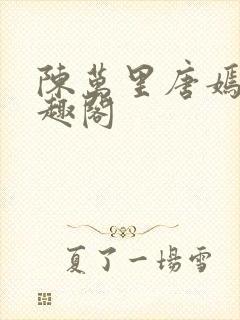 陳萬里唐嫣
趣閣
夏了一場雪